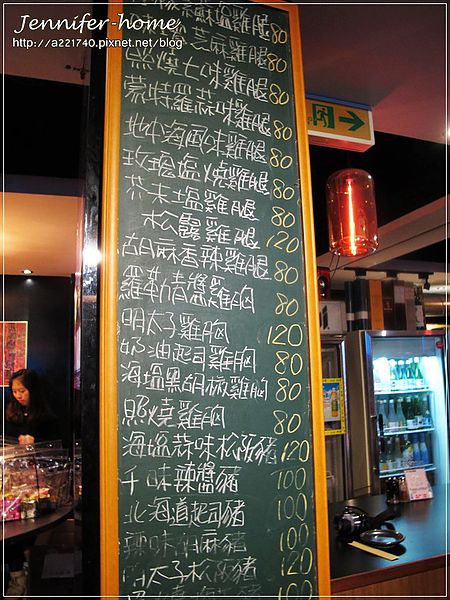 Jennifer-home
http://a221740.pixnet.net/blog
蘇鹽雞腿 80
芝麻雞腿 80
燒七味雞腿 80
蒙特羅蒜味雞腿 80
地中海風味雞腿 80
玫瑰鹽燒雞腿 80
芥末鹽雞腿 80
松露雞腿 120
胡麻香辣雞腿 80
羅勒青醬雞胸 80
明太子雞胸 120
奶油起司雞胸 80
海鹽黑胡椒雞胸 80
照燒雞胸 80
海鹽蒜味松阪豬 120
千味辣醬豬 100
北海道起司豬 100
辣味胡麻豬 100
明太子松阪豬 120
100